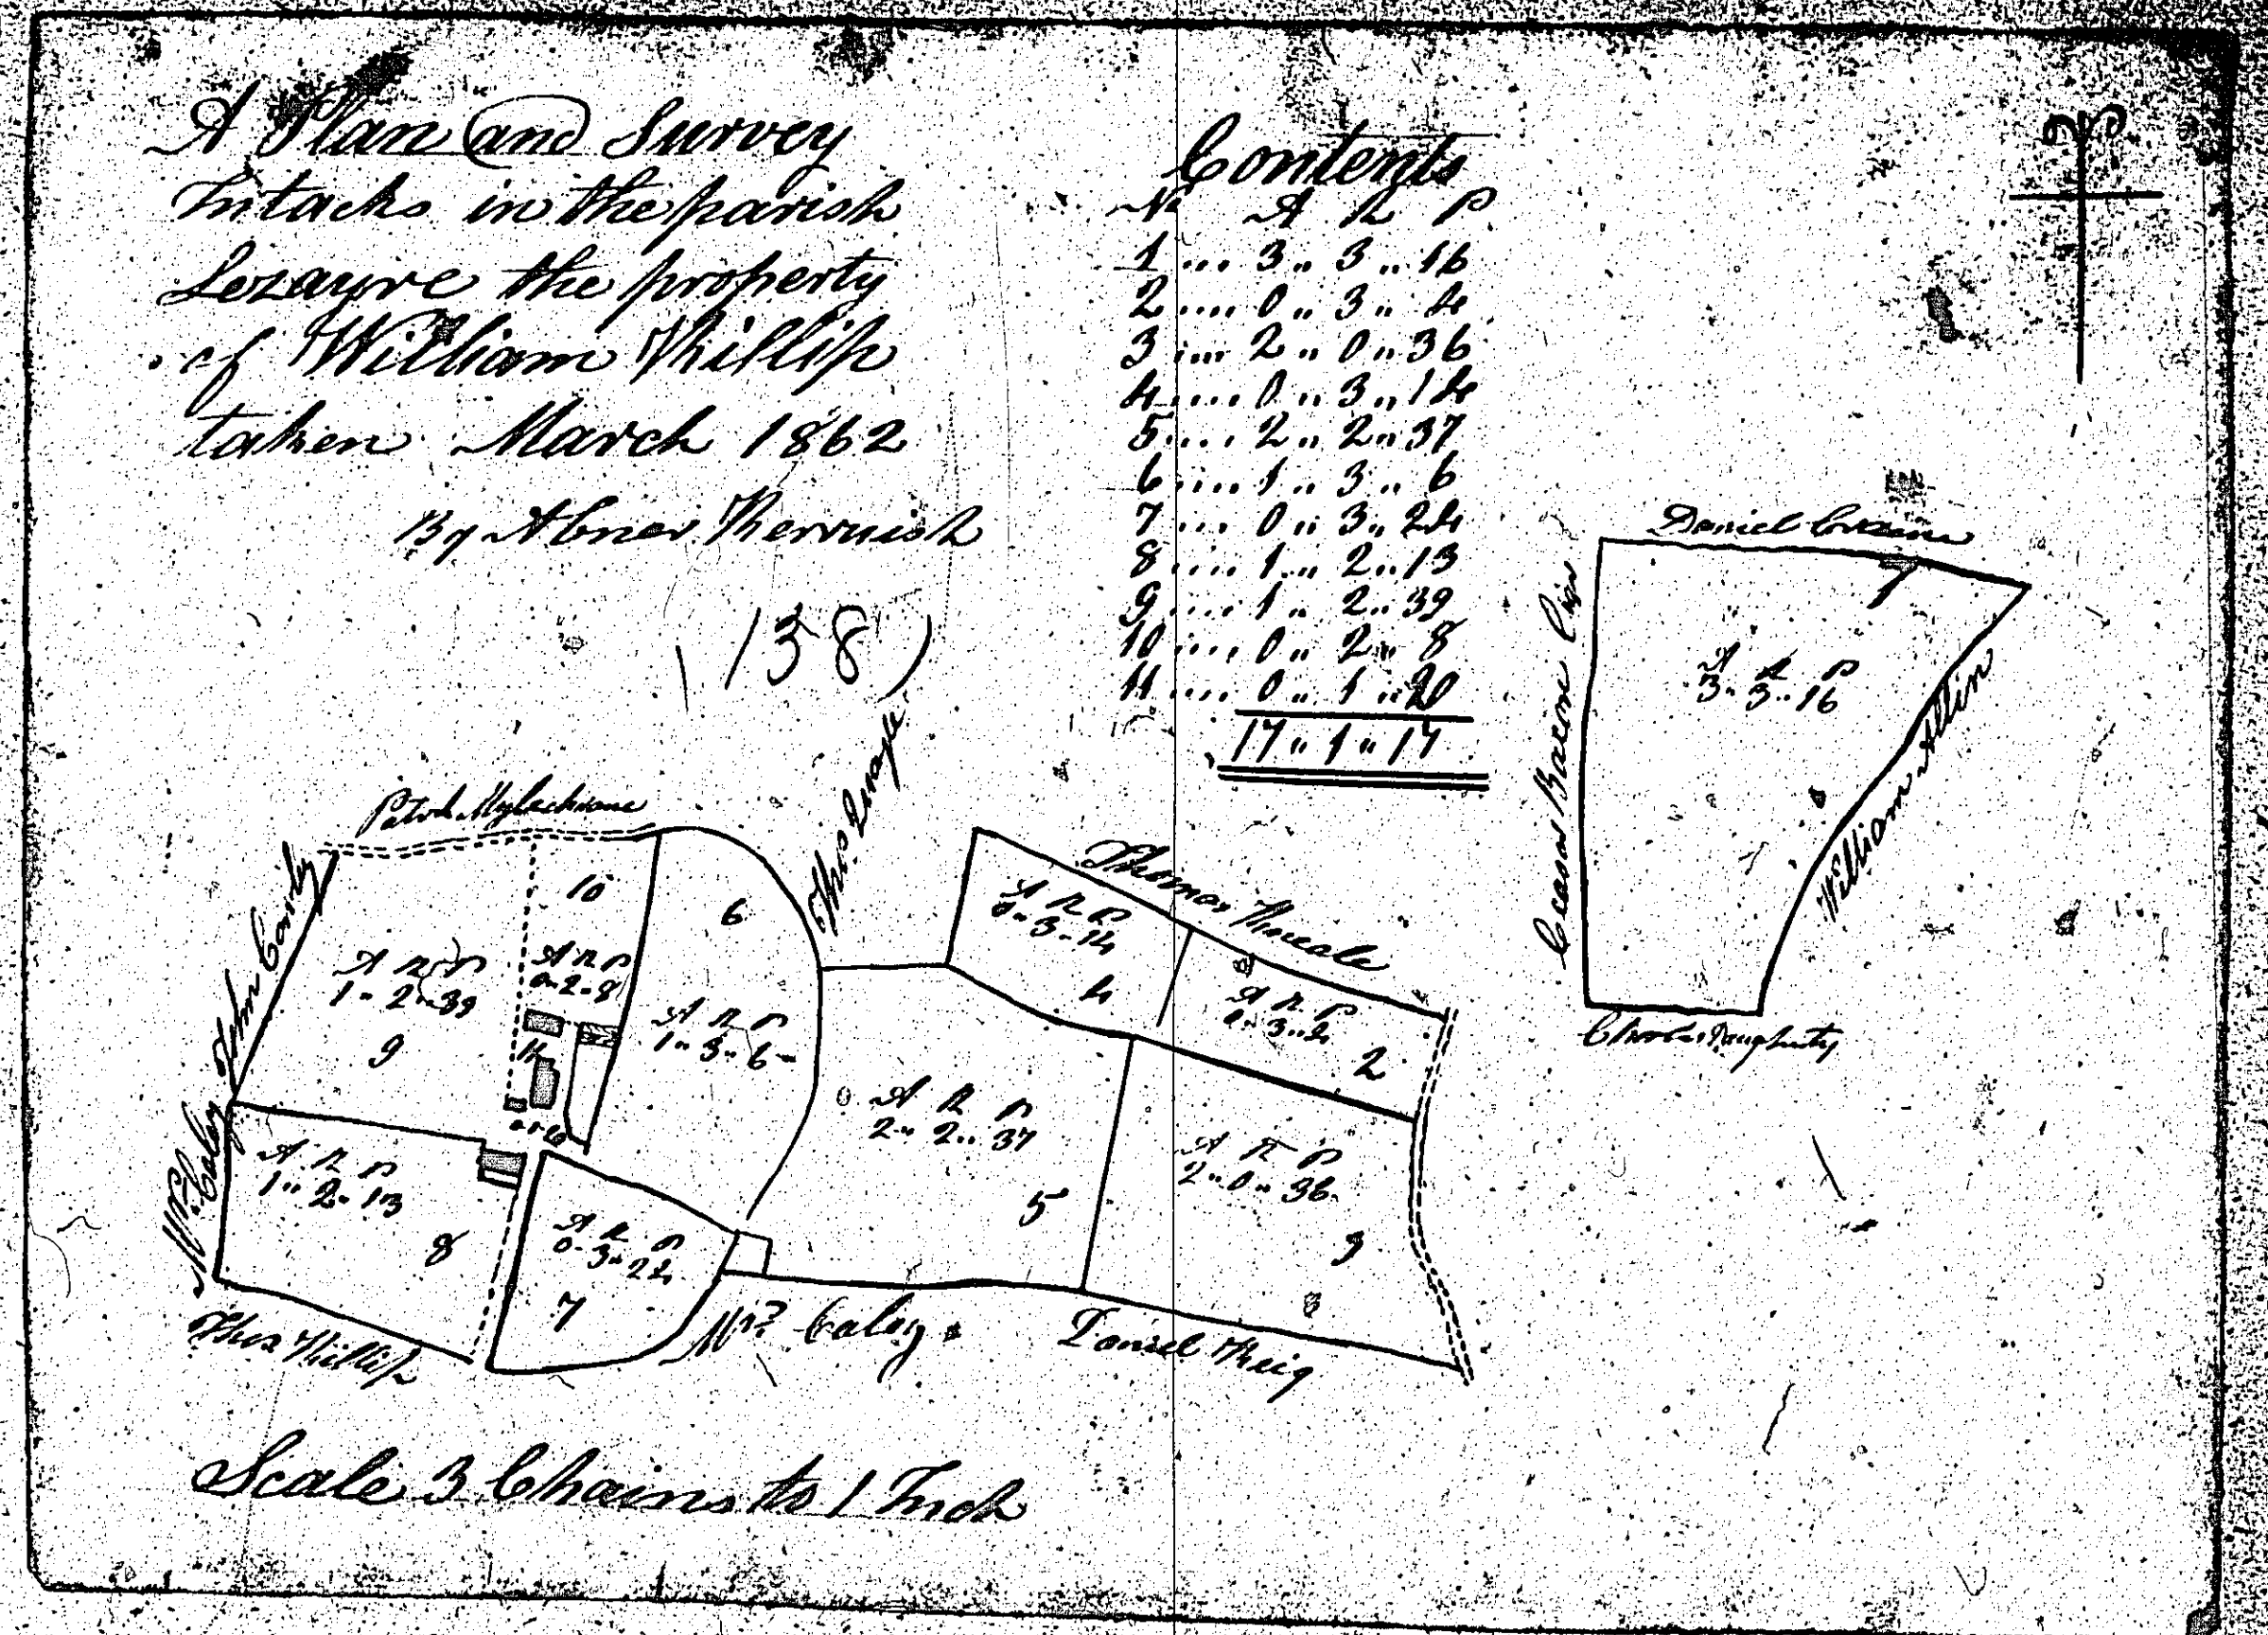 A Plan and Survey
Intacks in the parish
Lezayre the property
of William Killip
taken March 1862
By Abner Kerruish
138
Contents
No A R P
1 ... 3 .. 3 .. 16
2 .... 0 .. 3 .. 4
3 .... 2 .. 0 .. 36
4 .... 0 .. 3 .. 14
5 .... 2 .. 2 .. 37
6 .... 1 .. 3 .. 6
7 ... 0 .. 3 .. 24
8 .... 1 .. 2 .. 13
9 .... 1 .. 2 .. 39
10 .... 0 .. 2 .. 8
11 .... 0 .. 1 .. 20
17 .. 1 .. 17
Daniel Craine
1
A R P
3 .. 3 .. 16
Ceasar Bacon
William Allin
Charles Daugherty
Patrk Mylechrane
John
Mr Caley
Thos Quayle
Thomas Kneale
10
A R P
0 .. 2 .. 8
6
A R P
1 .. 3 .. 6
A R P
1 .. 2 .. 39
9
11
0 .. 1 .. 20
A R P
0 .. 3 .. 14
4
A R P
0 .. 3 .. 4
2
A R P
2 .. 2 .. 37
5
A R P
2 .. 0 .. 36
3
A R P
1 .. 2 .. 13
8
A R P
0 .. 3 .. 24
7
Thos Killip
Mr Caley
Daniel Keig
Scale 3 Chains to 1 Inch